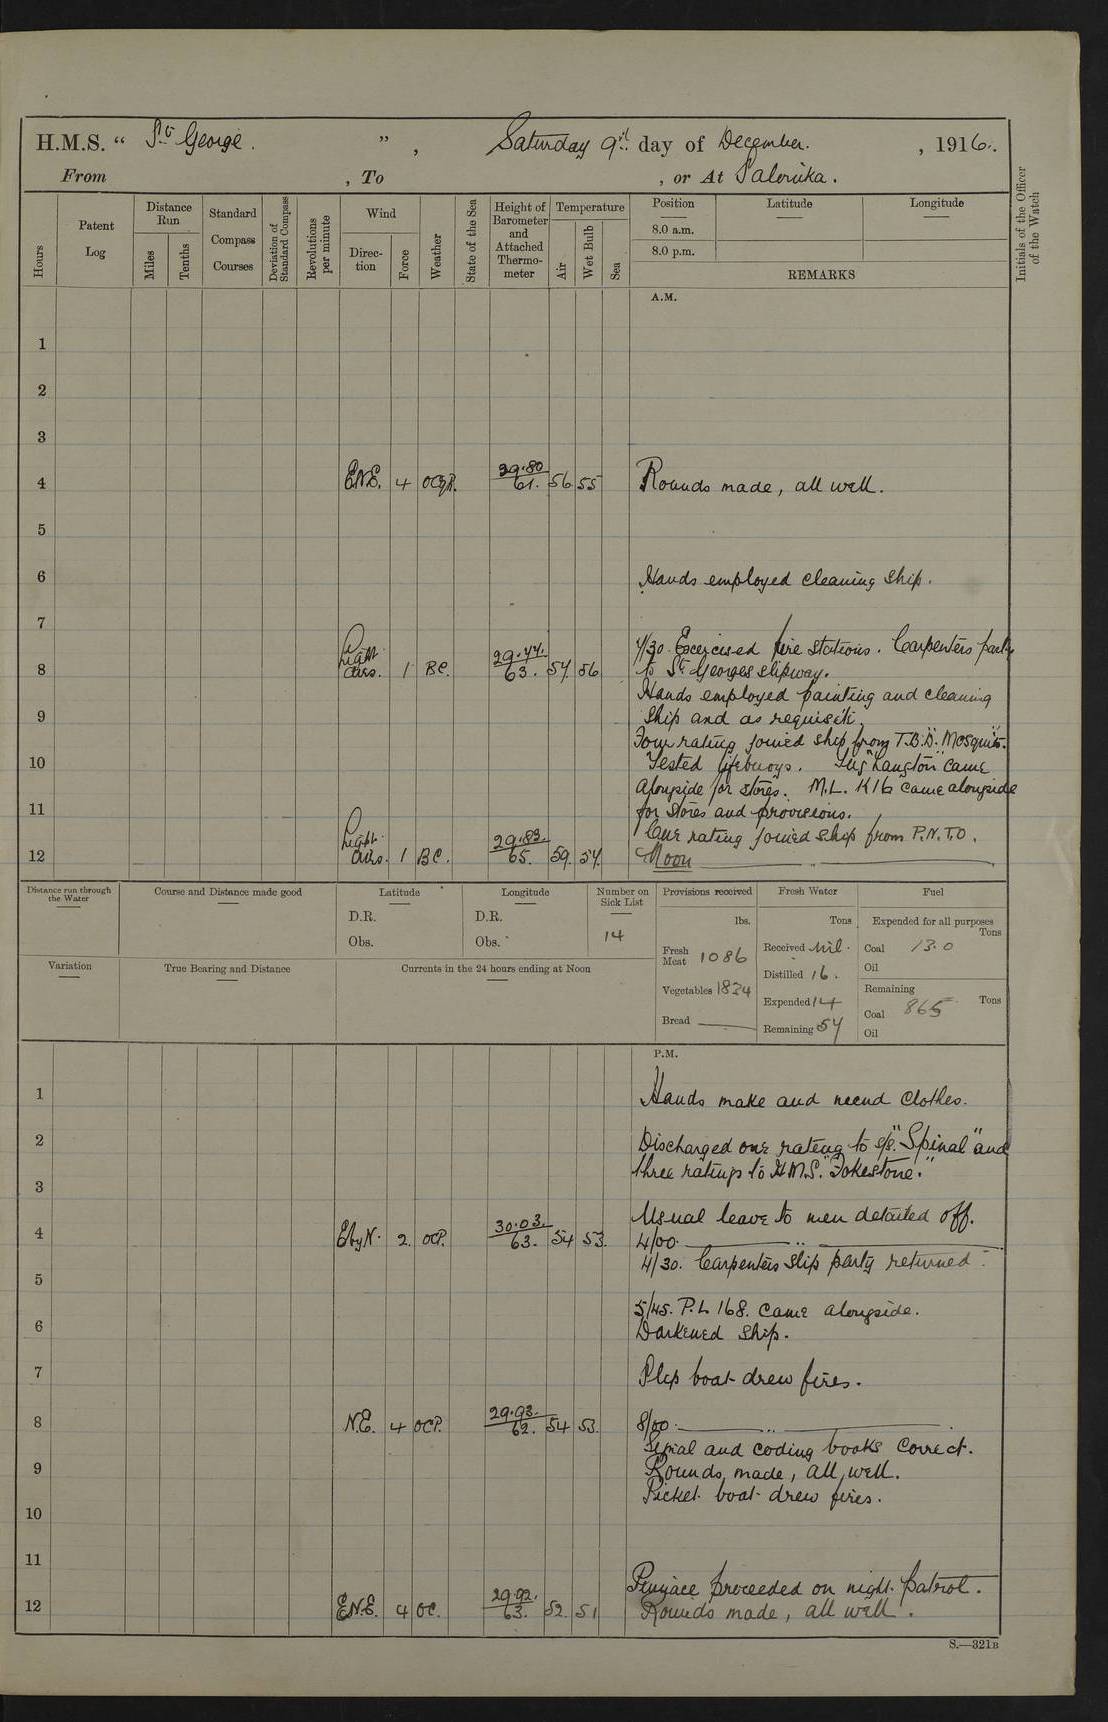 H.M.S. “ St George. ” , Saturday 9th day of December. , 1916.
From , To , or At Salonika.
Hours
Patent Log
Distance Run
Miles
Tenths
Standard Compass Courses
Deviation of Standard Compass
Revolutions per minute
Wind
Direction
Force
Weather
State of the Sea
Height of Barometer and Attached Thermometer
Temperature
Air
Wet Bulb
Sea
Position
8.0 a.m.
8.0 p.m.
Latitude
Longitude
REMARKS
Initials of the Officer of the Watch
A.M.
1
2
3
4 E.N.E. 4 29.80 61. 56 55 Rounds made, all well.
5
6 Hands employed cleaning ship.
7
7/30. Excercised fire stations. Carpenters party
8 Light airs. 1 BC. 29.77. 63. 57. 56 to St Georges slipway.
Hands employed painting and cleaning
9 Ship and as requisite.
Four rating joined ship from T.B.D. "Mosquito".
10 Tested lifebuoys. Tug "Langton" came
alongside for stores. M.L. K16 came alongside
11 for stores and provisions.
One rating joined ship from P.N.T.O.
12 Light airs. 1 BC. 29.83. 65. 59. 57. Noon
Distance run through the Water
Course and Distance made good
Latitude
D.R.
Obs.
Longitude
D.R.
Obs.
Number on Sick List
14
Provisions received
lbs.
Fresh Meat 1086
Vegetables 1834
Bread
Fresh Water
Tons
Received Nil.
Distilled 16.
Expended 14
Remaining 57
Fuel
Expended for all purposes
Tons
Coal 13.0
Oil
Remaining
Tons
Coal 865
Oil
Variation
True Bearing and Distance
Currents in the 24 hours ending at Noon
P.M.
1 Hands make and mend clothes.
2 Discharged one rating to S/S. "Spinal" and
three ratings to H.M.S. "Fokestone."
3
Usual leave to men detailed off.
4 E by N. 2. OCP. 30.03. 63. 54 53. 4/00.
4/30. Carpenters slip party returned.
5
5/45. P.L 168. came alongside.
6 Darkened ship.
7 boat drew fires.
8 N.E. 4 OCP. 29.93. 62. 54 53. 8/00.
Signal and coding books correct.
9 Rounds made, all well.
Picket boat drew fires.
10
11
Pinnace proceeded on night patrol.
12 E.N.E. 4 OC. 29.92. 63. 52. 51 Rounds made, all well.
S.—321B